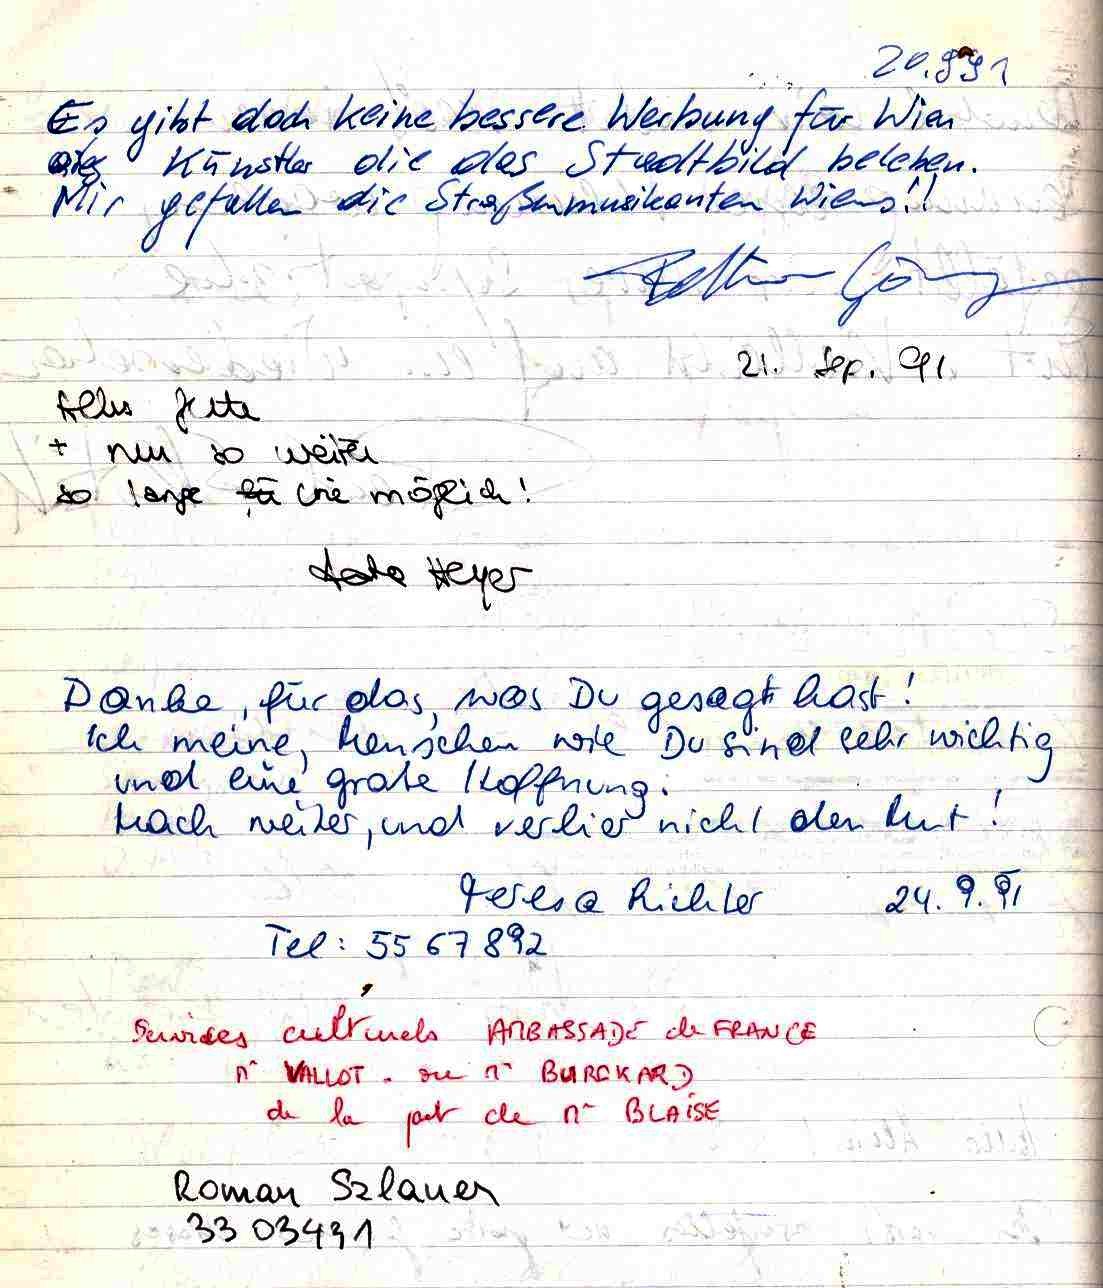 20.9.91
Es gibt doch keine bessere Werbung für Wien
als Künstler die das Stadtbild beleben.
Mir gefallen die Straßenmusikanten Wiens!!
21. Sep. 91
Alles Gute
+ nur so weiter
so lange wie möglich!
Heyer
Danke, für das, was Du gesagt hast!
Ich meine, Menschen wie Du sind sehr wichtig
und eine große Hoffnung.
Mach weiter, und verlier nicht den Mut!
Teresa Richter 24.9.91
Tel: 55 67 892
Services culturels AMBASSADE de FRANCE
Mr VALLOT. ou Mr BURCKARD
de la part de Mr BLAISE
Roman Szlauer
33 03431